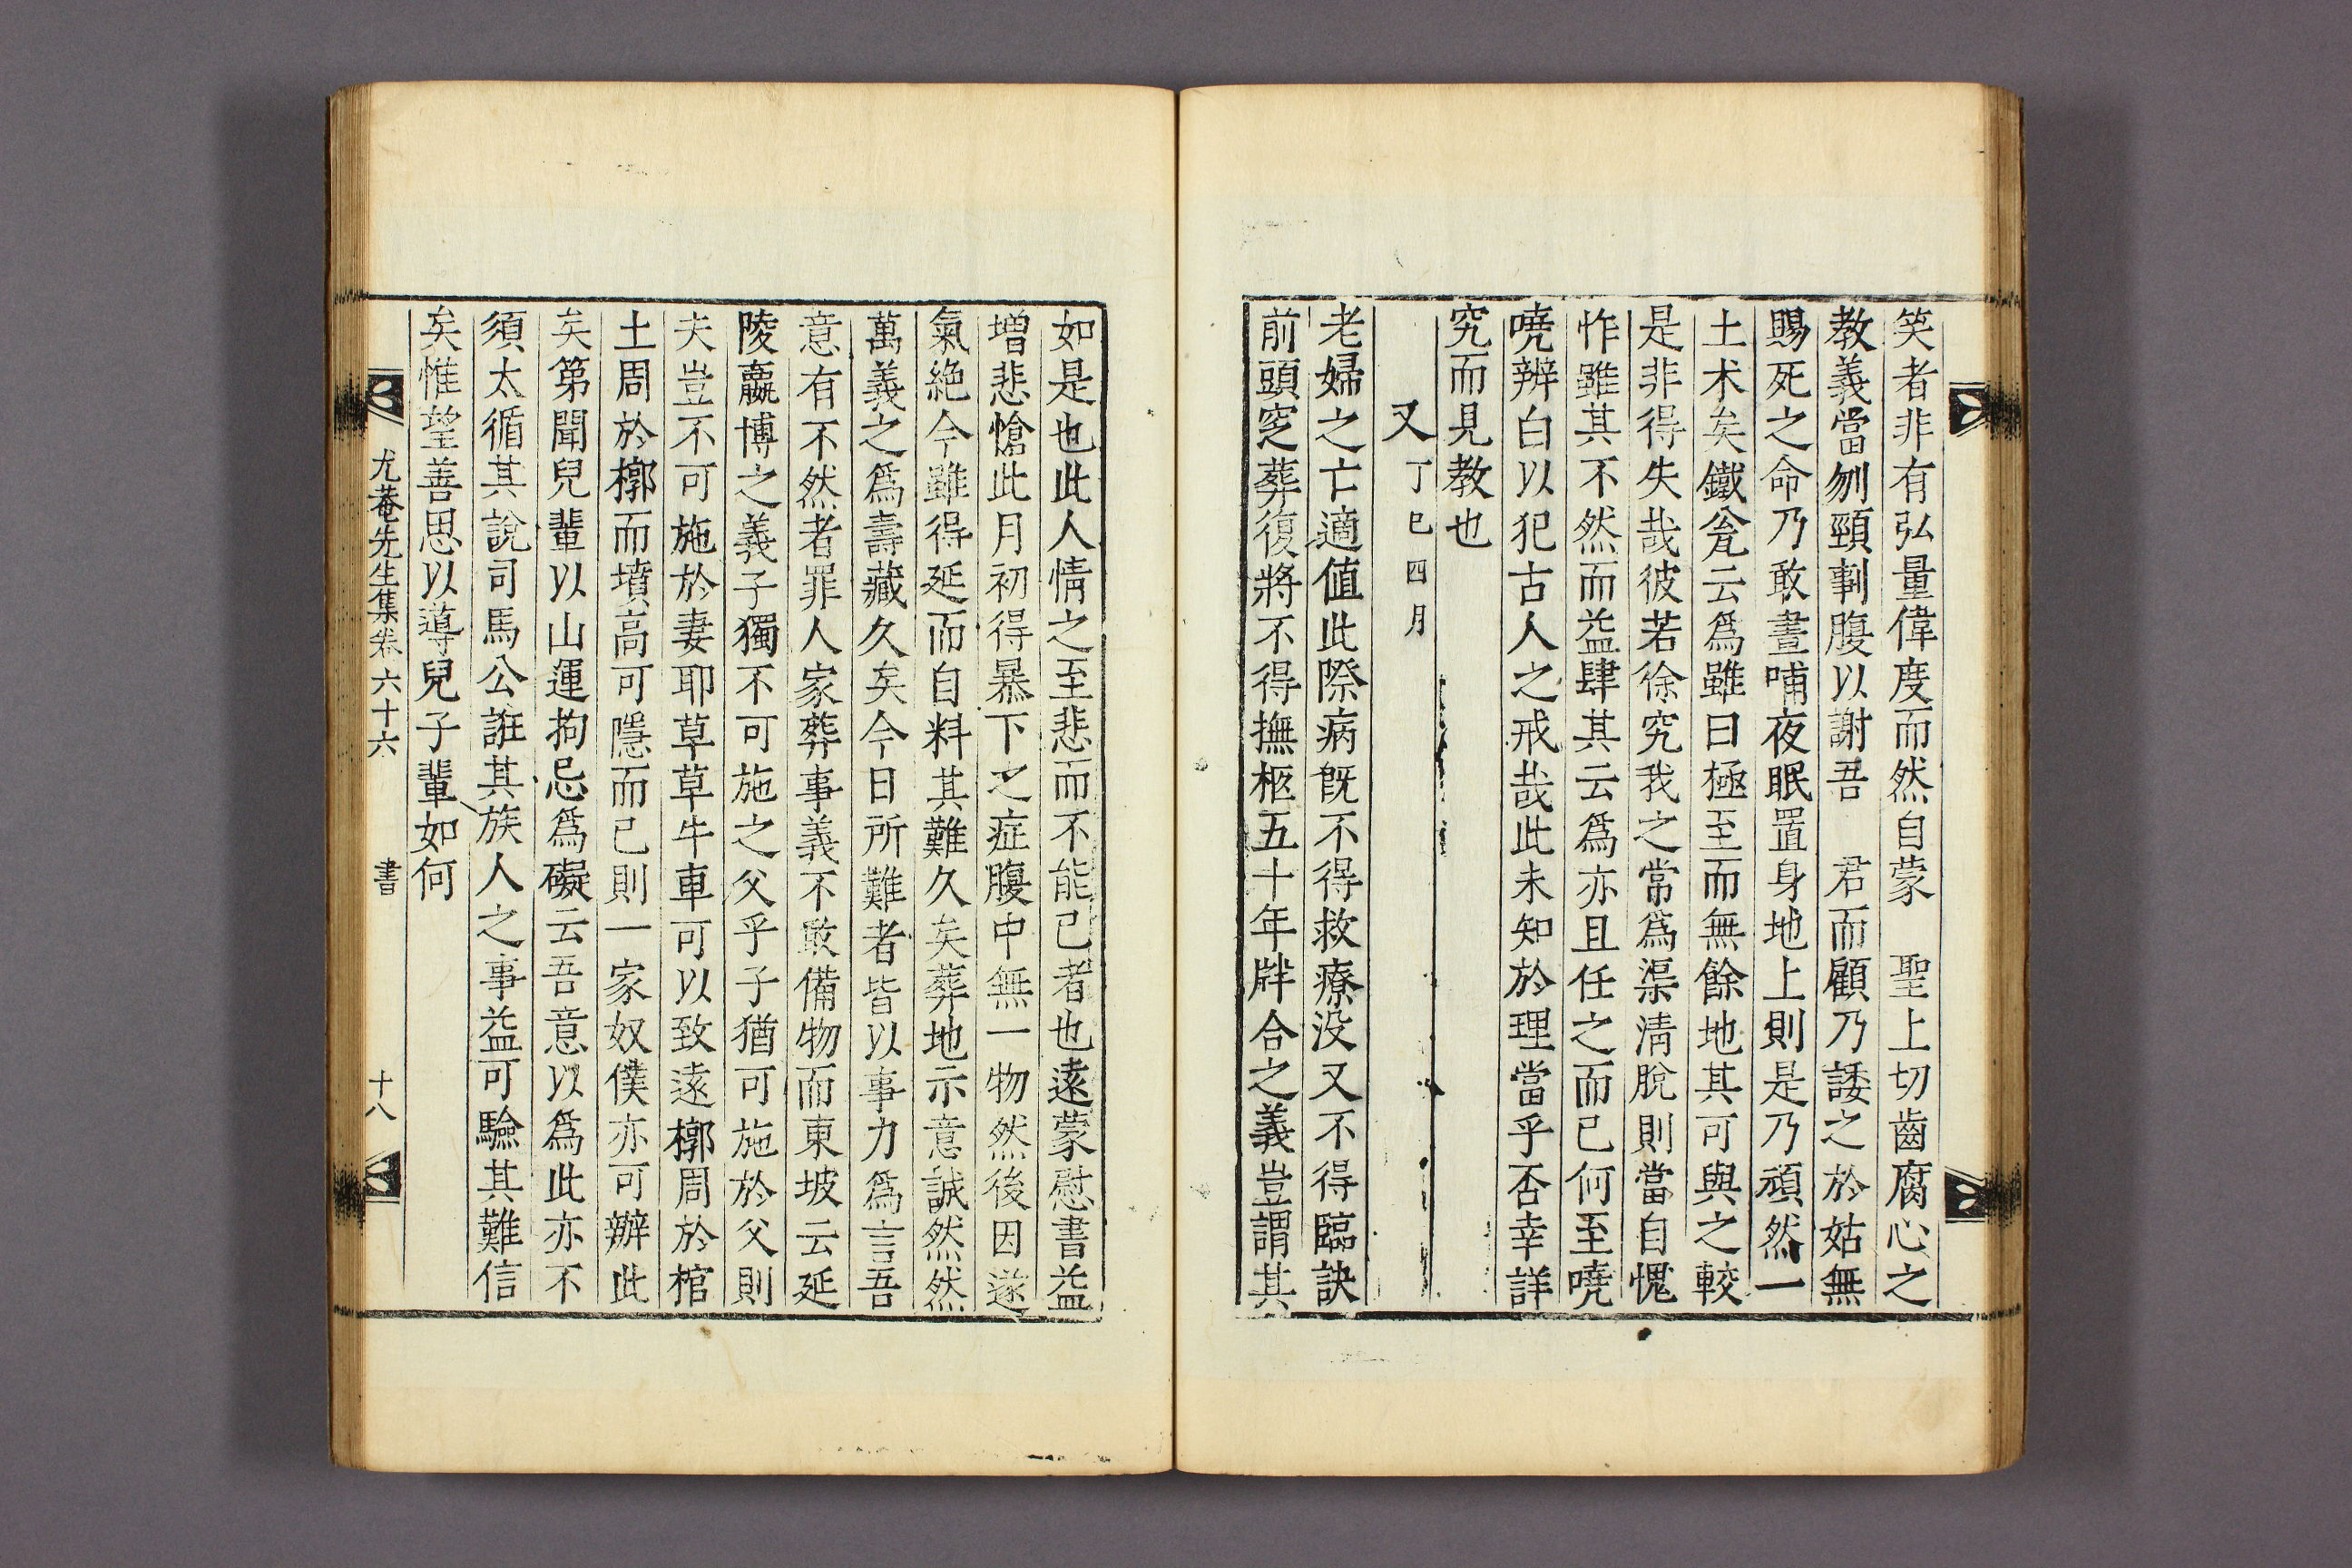 笑者非有弘量偉度而然自蒙　聖上切齒腐心之
教義當刎頸剚腹以謝吾　君而顧乃諉之於姑無
賜死之命乃敢晝哺夜眠置身地上則是乃頑然一
土木矣鐵瓮云爲雖曰極至而無餘地其可與之較
是非得失哉彼若徐究我之常爲渠淸脫則當自愧
怍雖其不然而益肆其云爲亦且任之而已何至嘵
嘵辨白以犯古人之戒哉此未知於理當乎否幸詳
究而見教也
又丁巳四月
老婦之亡適値此際病旣不得救療没又不得臨訣
前頭窆葬復將不得撫柩五十年牉合之義豈謂其
如是也此人情之至悲而不能已者也遠蒙慰書益
增悲愴此月初得暴下之症腹中無一物然後因遂
氣絶今雖得延而自料其難久矣葬地示意誠然然
萬義之爲壽藏久矣今日所難者皆以事力爲言吾
意有不然者罪人家葬事義不敢備物而東坡云延
陵嬴博之義子獨不可施之父乎子猶可施於父則
夫豈不可施於妻耶草草牛車可以致遠槨周於棺
土周於槨而墳高可隱而已則一家奴僕亦可辦此
矣第聞兒輩以山運拘忌爲礙云吾意以爲此亦不
須太循其說司馬公誑其族人之事益可驗其難信
矣惟望善思以導兒子輩如何
尤菴先生集卷六十六　書　十八